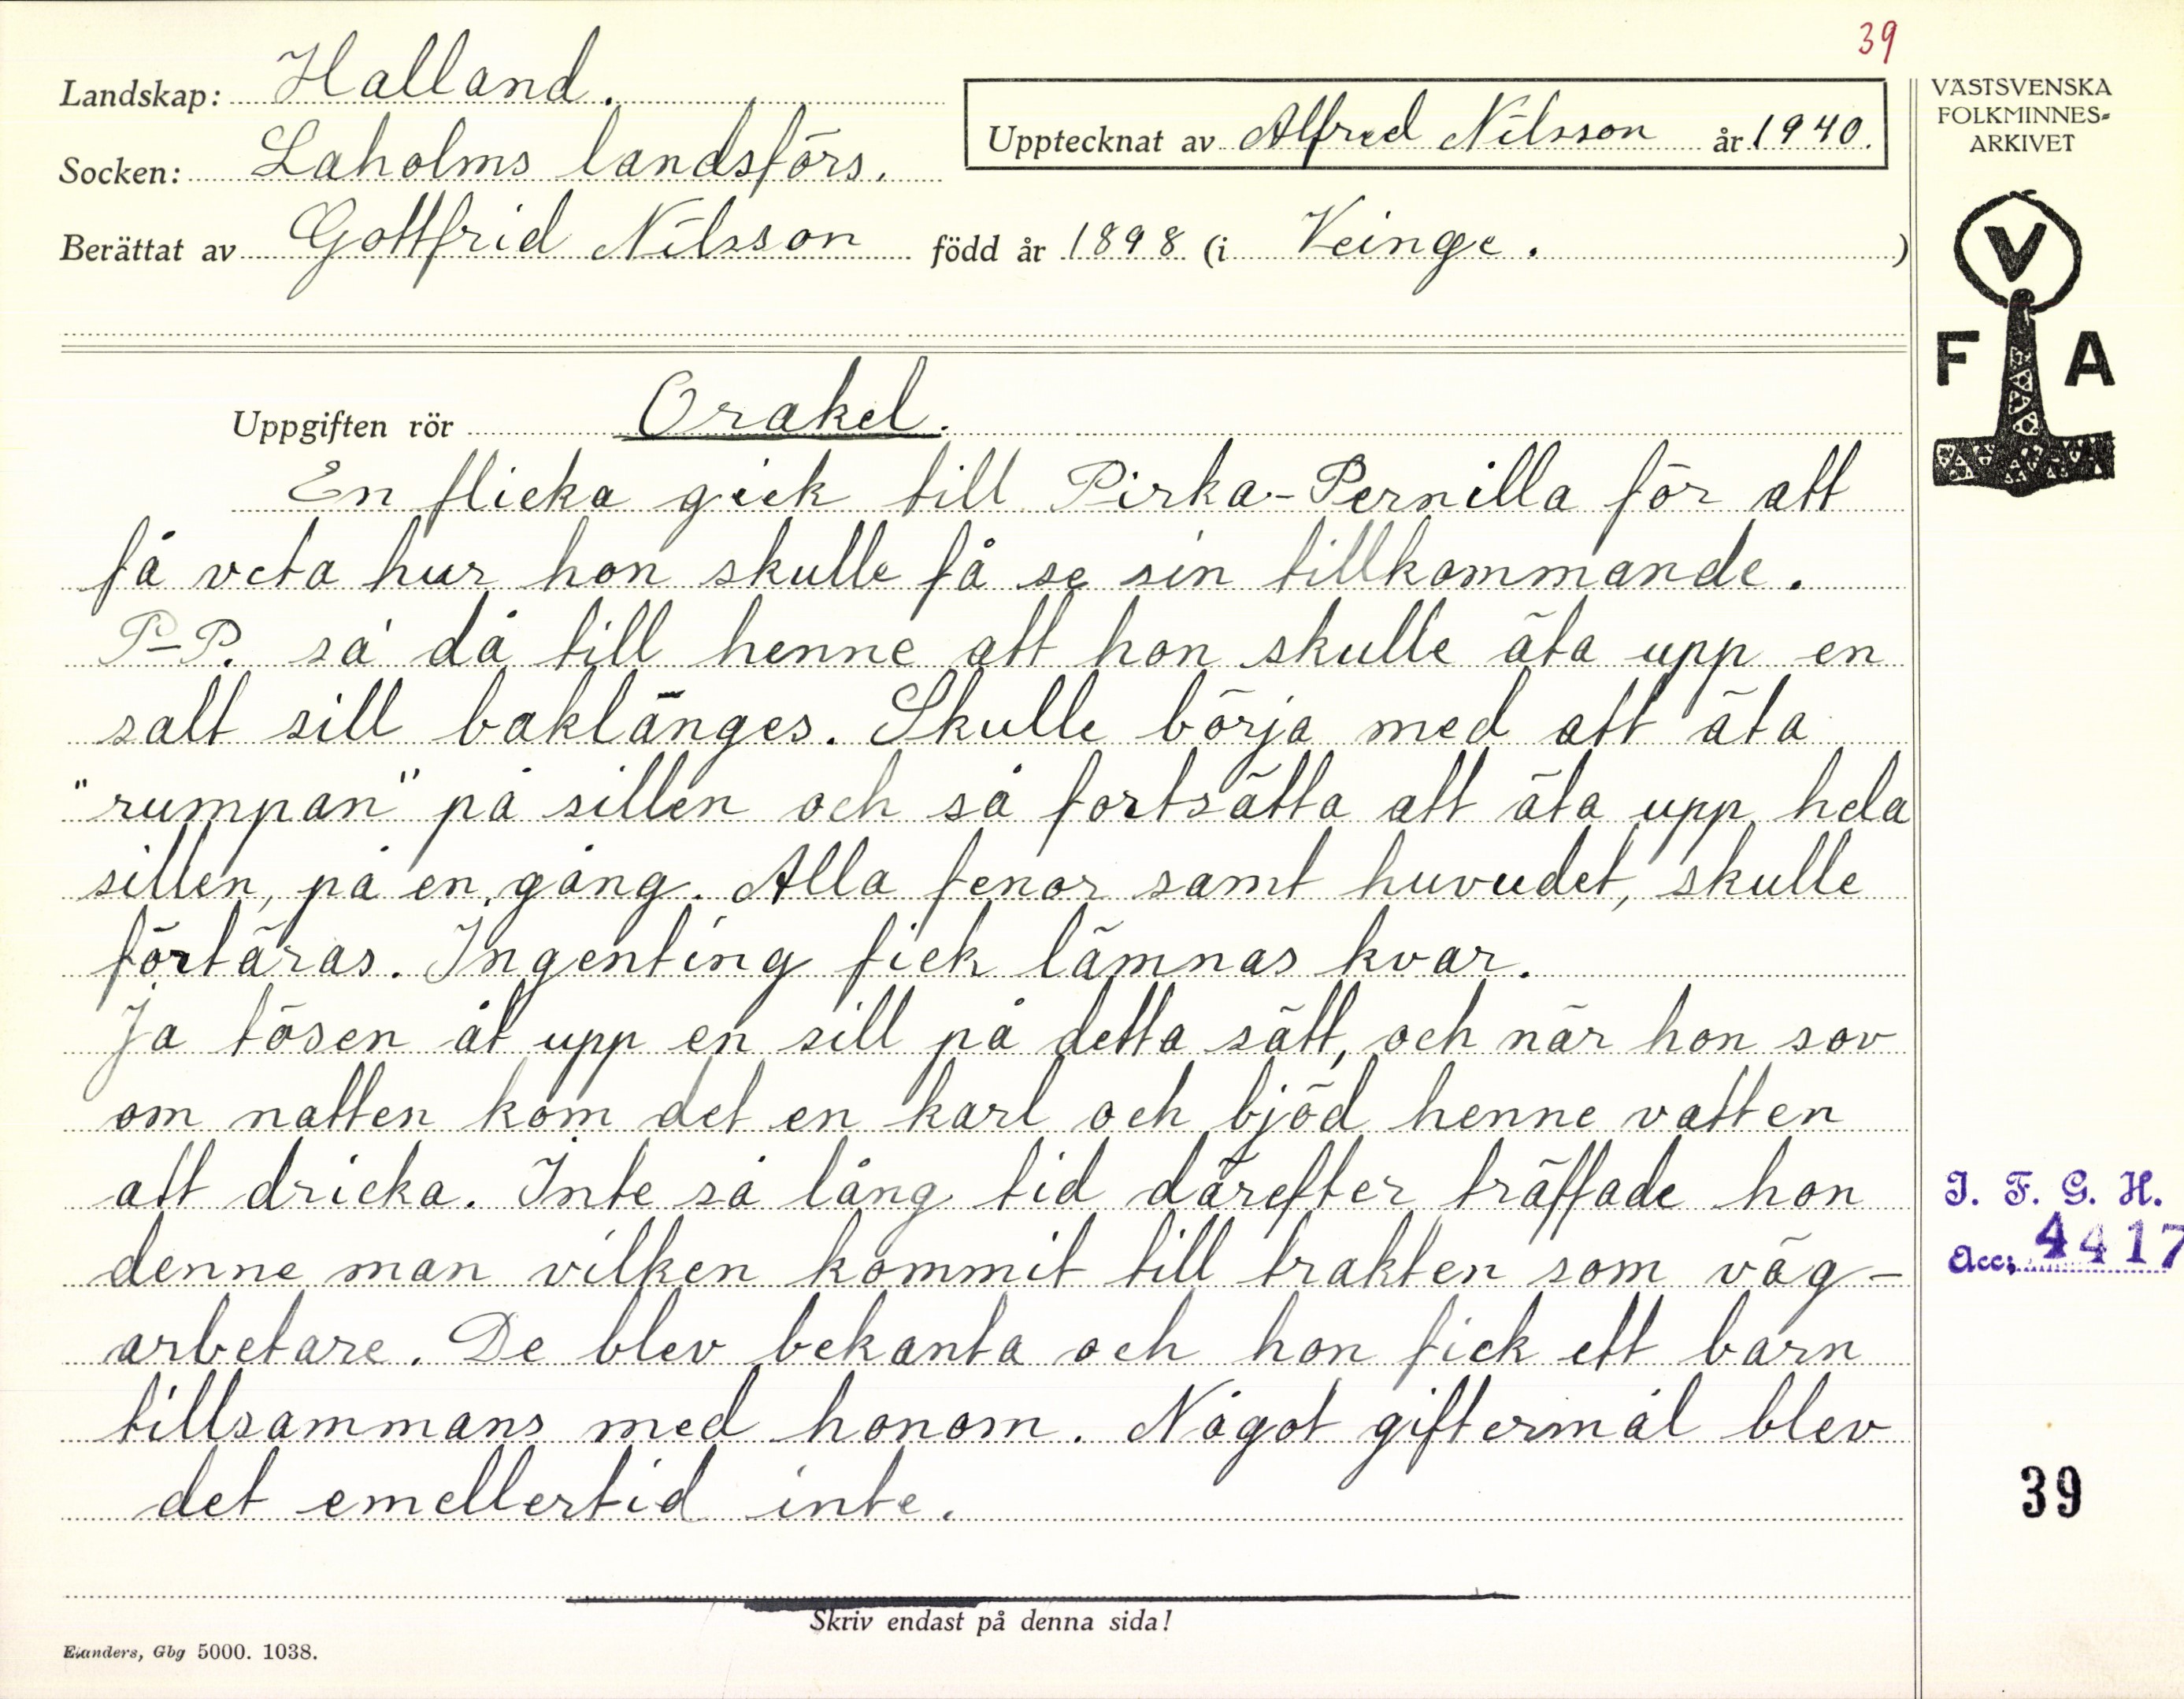 39
Landskap: Halland.
Socken: Laholms landsförs.
Upptecknat av Alfred Nilsson år 1940.
Berättat av Gottfrid Nilsson född år 1898 (i Veinge.)
VÄSTSVENSKA
FOLKMINNES-
ARKIVET
V
F A
Uppgiften rör Orakel.
En flicka gick till Pirka-Pernilla för att
få veta hur hon skulle få se sin tillkommande.
P-P. sa' då till henne att hon skulle äta upp en
salt sill baklänges. Skulle börja med att äta
"rumpan" på sillen och så fortsätta att äta upp hela
sillen, på en gång. Alla fenor samt huvudet, skulle
förtäras. Ingenting fick lämnas kvar.
Ja tösen åt upp en sill på detta sätt, och när hon sov
om natten kom det en karl och bjöd henne vatten
att dricka. Inte så lång tid därefter träffade hon
denne man vilken kommit till trakten som väg-
arbetare. De blev bekanta och hon fick ett barn
tillsammans med honom. Något giftermål blev
det emellertid inte.
I. F. G. H.
Acc: 4417
39
Skriv endast på denna sida!
Elanders, Gbg 5000. 1038.